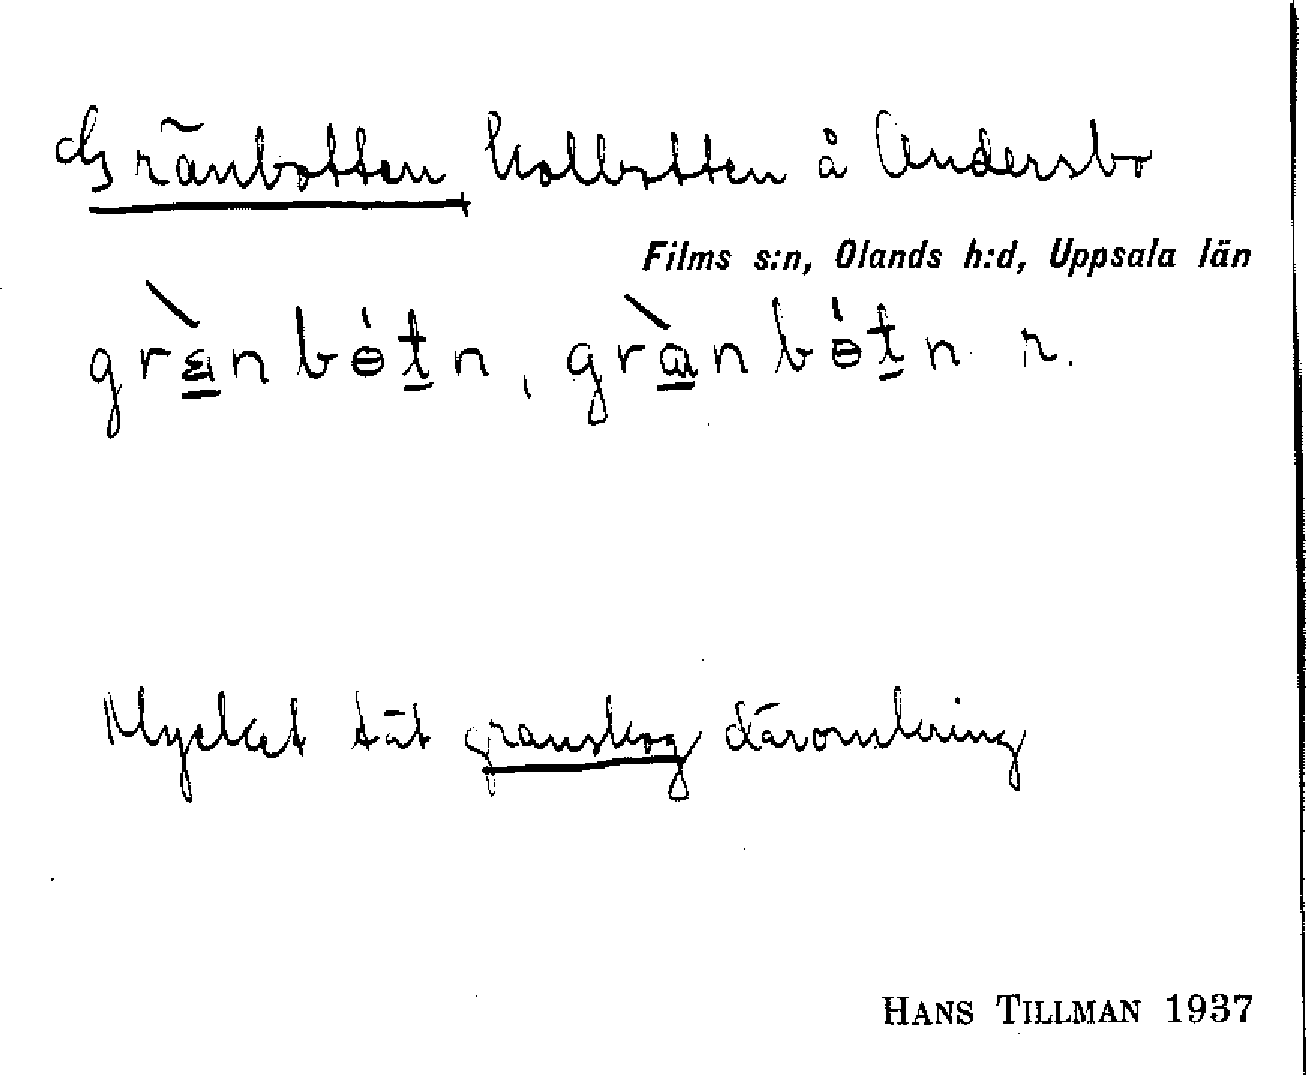 Gränbotten, Kolbotten å Andersbo
Films s:n, Olands h:d, Uppsala län
grὲ̱nbɵ́t̠n, grɑ̱̀nbɵ́t̠n r.
Mycket tät granskog däromkring
HANS TILLMAN 1937